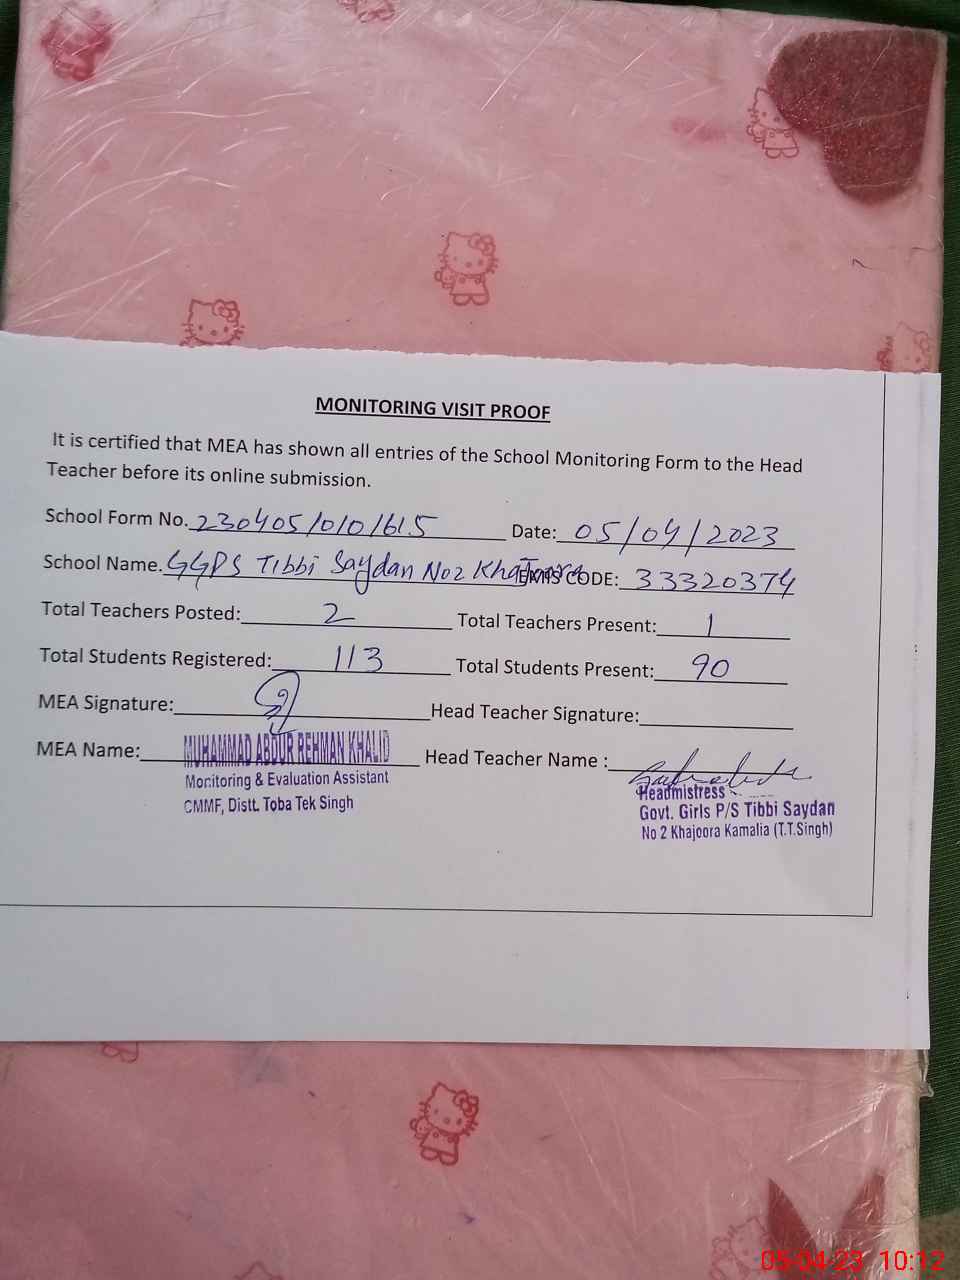 MONITORING VISIT PROOF
It is certified that MEA has shown all entries of the School Monitoring Form to the Head
Teacher before its online submission.
School Form No. 230405/010/615 Date: 05/04/2023
School Name. GGPS Tibbi Saydan No2 Khajoora EMIS CODE: 33320374
Total Teachers Posted: 2 Total Teachers Present: 1
Total Students Registered: 113 Total Students Present: 90
MEA Signature: Head Teacher Signature:
MEA Name: MUHAMMAD ABDUR REHMAN KHALID Head Teacher Name :
Monitoring & Evaluation Assistant
CMMF, Distt. Toba Tek Singh
Headmistress
Govt. Girls P/S Tibbi Saydan
No 2 Khajoora Kamalia (T.T.Singh)
05-04-23 10:12